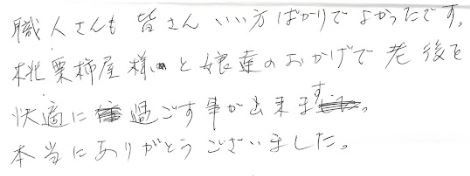 職人さんも皆さんいい方ばかりでよかったです。
桃栗柿屋様と娘達のおかげで老後を
快適に過ごす事が出来ます。
本当にありがとうございました。